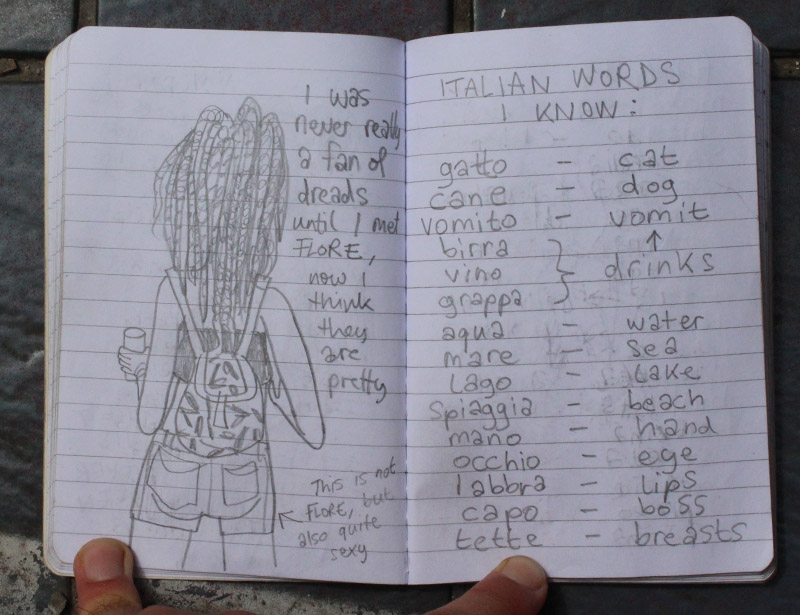 I was
never really
a fan of
dreads
until I met
FLORE,
now I
think
they
are
pretty
This is not
FLORE, but
also quite
sexy
ITALIAN WORDS
I KNOW:
gatto - cat
cane - dog
vomito - vomit
birra
vino } drinks
grappa
aqua - water
mare - sea
lago - lake
spiaggia - beach
mano - hand
occhio - eye
labbra - lips
capo - boss
tette - breasts